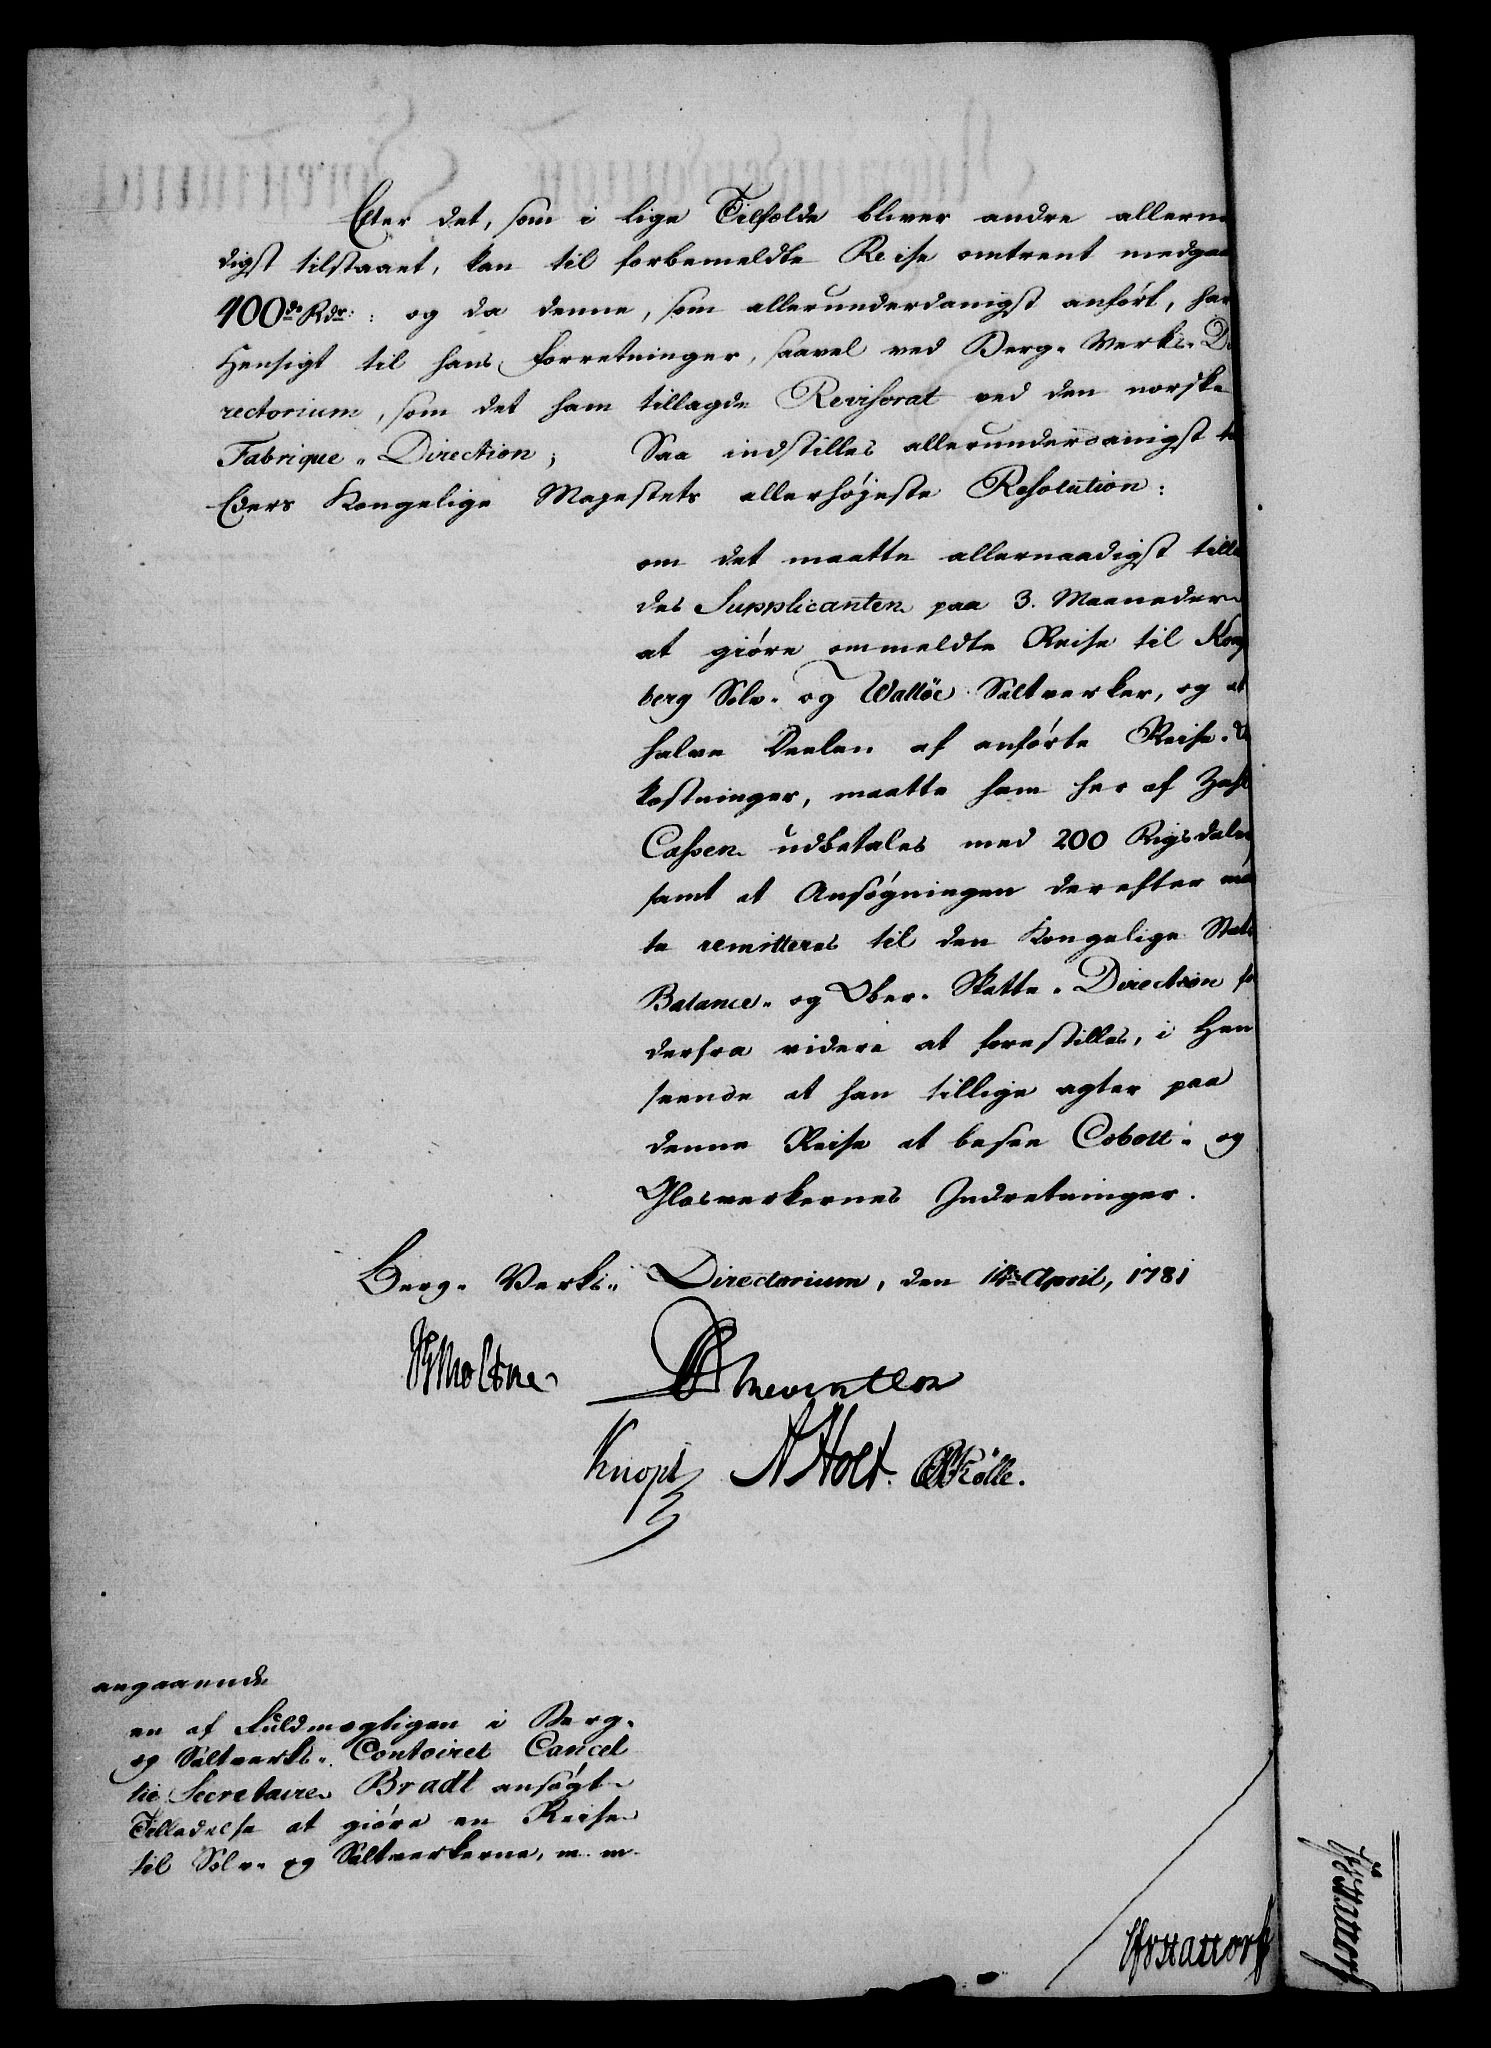 Efter det, som i lige Tilfælde bliver andre allerna
digst tilstaaet, kan til forbemeldte Reise omtrent medgaa
400 de Rdr: og da denne, som allerunderdanigst anført, har
Hensigt til hans forretninger, saavel ved Berg-Verks-Di
rectorium, som det ham tillagde Revisorat ved den norske
Fabrique-Direction; Saa indstilles allerunderdanigst til
Eders Kongelige Majestets allerhøjeste Resolution:
om det maatte allernaadigst tilla
des Supplicanten paa 3. Maaneder
at giøre ommeldte Reise til Kongs
berg Sølv- og Walløe Saltverker, og at
halve Deelen af anførte Reise-
kostninger, maatte ham her af Zahl
Cassen udbetales med 200 Rigsdaler
samt at Ansøgningen derefter maa
te remitteres til den Kongelige Stats
Balance- og Ober-Skatte-Direction for
derfra videre at forestilles, i Hen
seende at han tillige agter paa
denne Reise at besee Cobolt- og
Glasverkernes Indretninger.
Berg-Verks-Directorium, den 14de April, 1781
Moltke Reventlow
Knopf Holt Rølle.
angaaende
en af Fuldmægtigen i Berg-
og Saltverks-Contoiret Cancel
lie Secretairen Bradt ansøgt
Tilladelse at giøre en Reise
til Sølv- og Saltverkerne, m. m.